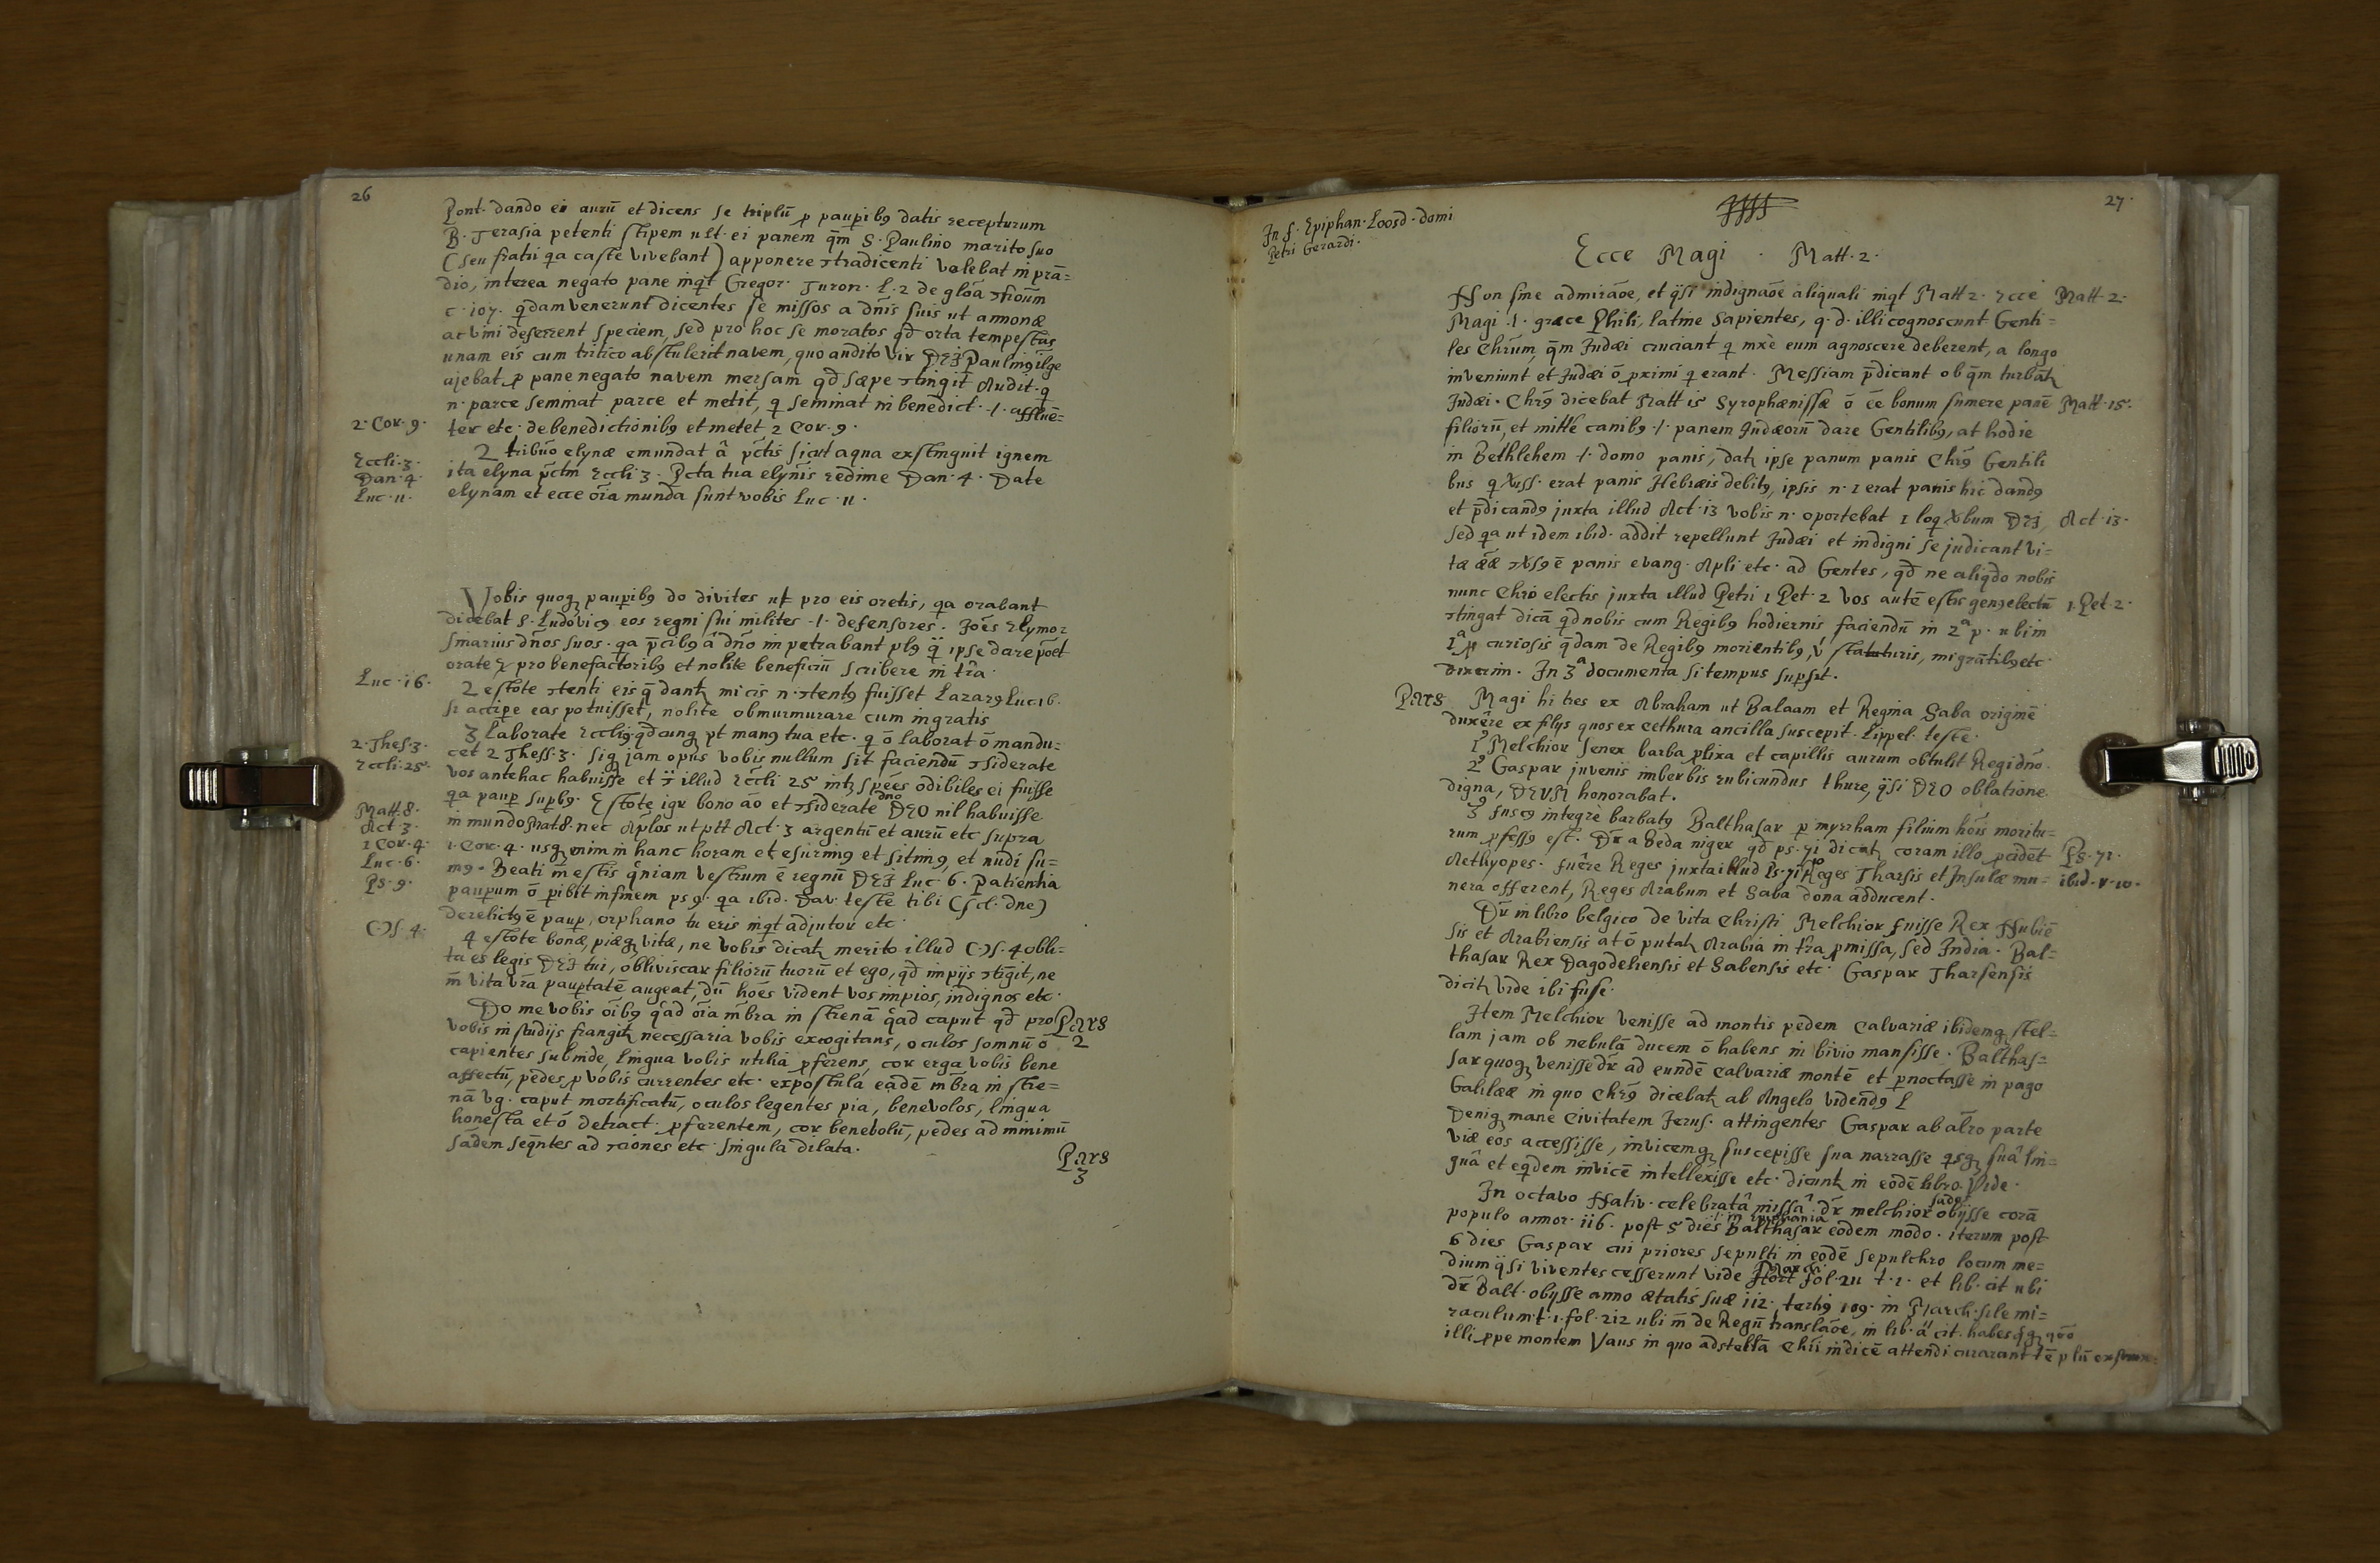 26
Pont. dando ei aurū et dicens se triplū p paupibꝰ datis recepturum
B. Terasia petenti stipem ult. ei panem q̄m S. Paulino marito suo
(seu fratri qa caste vivebant) apponere ꝯtradicenti volebat in prā=
dio, interea negato pane inqt Gregor. Turon. L. 2 de glōa
c. 107. qdam venerunt dicentes se missos a dnīs suis ut annonæ
ac vini deferrent speciem, sed pro hoc se moratos qd orta tempestas
unam eis cum tritico abstulerit navem, quo audito vir DEI Paulinꝰ
ajebat, p pane negato navem mersam qd sæpe ꝯtingit Audit. q
n. parce seminat parce et metit, q seminat in benedict. .1. affluē=
2. Cor. 9. ter etc. de benedictionibꝰ et metet 2 Cor. 9.
2 tribuo elynæ emundat â pctis sicut aqua exstinguit ignem
Eccli. 3. ita elyna pctm Eccli 3. Pcta tua elynis redime Dan. 4. Date
Dan. 4.
Luc. 11. elynam et ecce oīa munda sunt vobis Luc. 11.
Vobis quoq paupibꝰ do divites ut pro eis oretis, qa orabant
dicebat S. Ludovicꝰ eos regni sui milites .1. defensores. Joēs Elymoz
sinarius dnos suos. qa pcibꝰ â dnō impetrabant plꝰ q̄ ipse dare pōet
orate & pro benefactoribꝰ et nolite beneficiū scribere in trā.
Luc. 16. 2 estote ꝯtenti eis q̄ dant micis n. ꝯtentꝰ fuisset Lazarꝰ Luc 16.
si accipe eas potuisset, nolite obmurmurare cum ingratis
3 Laborate Eccli 9. qdcunq pt manꝰ tua etc. q ō laborat ō mandu=
2. Thes. 3. cet 2 Thess. 3. Siq jam opus vobis nullum sit faciendū ꝯsiderate
Eccli. 25. vos antehac habuisse et illud Eccli 25 spēes odibiles ei fuisse
qa paup supbꝰ. Estote igr bono aō et ꝯsiderate dnō DEO nil habuisse
Matt. 8. in mundo Matt 8. nec Aplos ut ptt Act. 3 argentū et aurū etc supra
Act. 3.
1 Cor. 4. 1. Cor. 4. usq enim in hanc horam et esurimꝰ et sitimꝰ, et nudi su=
Luc. 6. mꝰ. Beati m̄ estis qniam vestrum ē regnū DEI Luc. 6. Patientia
Ps. 9. paupum ō pibit in finem ps 9. qa ibid. Dav. teste tibi (scl. dne)
derelictꝰ ē paup, orphano tu eris inqt adjutor etc.
Os. 4. 4 estote bonæ, piæq vitæ, ne vobis dicat merito illud Os. 4 obli=
ta es legis DEI tui, obliviscar filiorū tuorū et ego, qd impijs ꝯtīgit, ne
m̄ vita vrā paupitatē augeat, dū hoēs vident vos impios, indignos etc.
Do me vobis oībꝰ qad oīa mbra in strenā qad caput qd pro Pars
2
vobis in studijs frangit, necessaria vobis excogitans, oculos somnū ō
capientes subinde, lingua vobis utilia pferens, cor erga vobis bene
affectū, pedes p vobis currentes etc. expostula eadē mbra in stre=
nā vg. caput mortificatū, oculos legentes pia, benevolos, lingua
honesta et ō detract. pferentem, cor benevolū, pedes ad minimū
sādem seqntes ad rāiones etc. singula dilata.
Pars
3
27.
In f. Epiphan. Loosd. domi
Petri Gerardi.
Ecce Magi . Matt. 2.
Non sine admirāoe, et qsi indignāoe aliquali inqt Matt 2. Ecce Matt. 2.
Magi .1. græce Phili, latine Sapientes, q. d. illi cognoscunt Genti=
les Chrūm, q̄m Judæi cruciant q mxē eum agnoscere deberent, a longo
inveniunt et Judæi ō proximi q erant. Messiam pdicant ob q̄m turbat
Judæi. Chrꝰ dicebat Matt 15 Syrophænissæ ō ēe bonum sumere panē Matt. 15.
filiorū, et mitte canibꝰ .1. panem Judæorū dare Gentilibꝰ, at hodie
in Bethlehem .1. domo panis, dat ipse panum panis Chrꝰ Gentili
bus q erat panis Hebræis debitꝰ, ipsis n. 1 erat panis hic dandꝰ
et pdicandꝰ juxta illud Act. 13 vobis n. oportebat 1 loq bum DEI, Act. 13.
sed qa ut idem ibid. addit repellunt Judæi et indigni se judicant vi=
tæ ææ ē panis evang. Apli etc. ad Gentes, qd ne aliqdo nobis
nunc Chrō electis juxta illud Petri 1 Pet. 2 vos autē estis genꝰ electū 1. Pet. 2.
ꝯtingat dicā qd nobis cum Regibꝰ hodiernis faciendū in 2ª p. ubi in
1ª p curiosis qdam de Regibꝰ morientibꝰ, migrātibꝰ etc
dixerim. In 3ª documenta si tempus supsit.
Pars Magi hi tres ex Abraham ut Balaam et Regina Saba originē
duxēre ex filijs quos ex Cethura ancilla suscepit. Lippel. teste.
1º Melchior senex barba plixa et capillis aurum obtulit Regi dnō.
2º Gaspar juvenis imberbis rubicundus thure, qsi DEO oblatione
digna, DEUM honorabat.
3º fuscꝰ integrè barbatꝰ Balthasar p myrrham filium hōis moritu=
rum pfessꝰ est. Dr a Beda niger qd ps. 71 dicat coram illo pcidēt Ps. 71.
Aethyopes. fuēre Reges juxta illud Ps. 71 10 Reges Tharsis et Insulæ mu= ibid. v. 10.
nera offerent, Reges Arabum et Saba dona adducent.
Dr in libro belgico de vita Christi Melchior fuisse Rex Nubiē
sis et Arabiensis at ō putat Arabia in tra pmissa, sed India. Bal=
thasar Rex Dagodeliensis et Sabensis etc. Gaspar Tharsensis
dicit vide ibi fuse.
Item Melchior venisse ad montis pedem Calvariæ ibidemq stel=
lam jam ob nebulā ducem ō habens in bivio mansisse. Balthas=
sar quoq venisse dr ad eundē Calvariæ montē et pnoctasse in pago
Galilææ in quo Chrꝰ dicebat ab Angelo videndꝰ
Deniq mane Civitatem Jerus. attingentes Gaspar ab alrō parte
viæ eos accessisse, invicemq suscepisse sua narrasse qsq suâ lin=
guâ et eqdem invicē intellexisse etc. dicunt in eodē libro. Vide.
In octavo Nativ. celebratâ missâ dr melchior obijsse corā
populo annor. 116. post 5 dies .1. in Epiphania Balthasar eodem modo. iterum post
6 dies Gaspar cui priores sepulti in eodē sepulchro locum me=
dium qsi viventes cesserunt vide March. fol. 211 t. 1. et lib. cit ubi
dr Balt. obijsse anno ætatis suæ 112. tertiꝰ 109. in March. sile mi=
raculum t. 1. fol. 212 ubi m̄ de Regū translāoe, in lib. â cit. habes qq qōo
illi ppe montem Vaus in quo ad stellā Chrī indicē attendi curarant tēplū